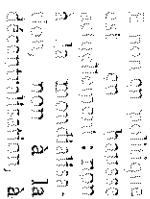 non en politique
est en hausse
aujourd'hui : non
à la mondialisa-
tion, non à la
décentralisation, à